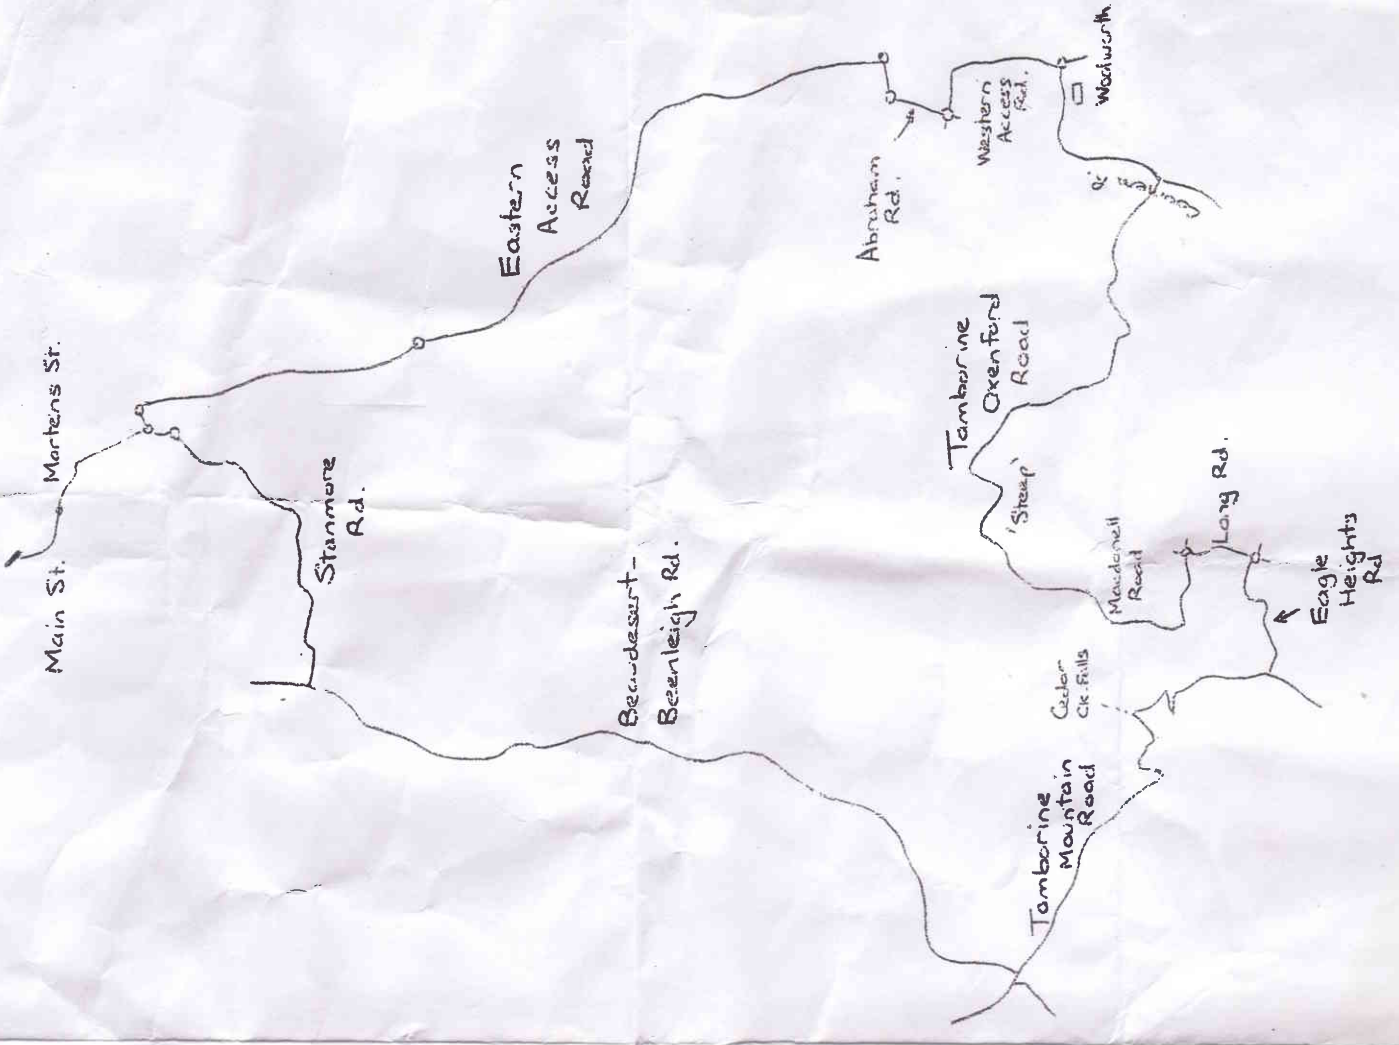 Main St.
Martens St.
Stanmore
Rd.
Eastern
Access
Road
Beaudesert-
Beenleigh Rd.
Abraham
Rd.
Western
Access
Rd.
Woolworth
Tamborine
Oxenford
Road
'Steep'
Macdonell
Road
Long Rd.
Eagle
Heights
Rd
Cedar
Ck. Falls
Tamborine
Mountain
Road